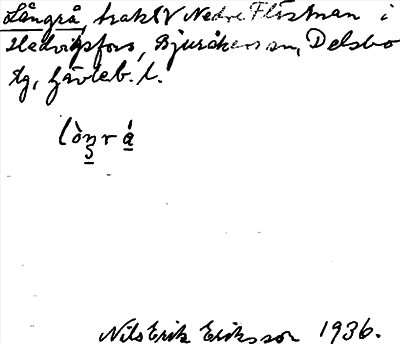 Långrå, trakt V Nedre Flåsman i
Hedvigsfors, Bjuråkers sn, Delsbo
tg, Gävleb. l.
lòŋrá
Nils Erik Eriksson 1936.